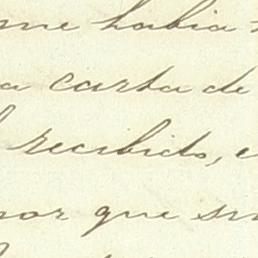 me habia
a carta de
recibido,
por que su